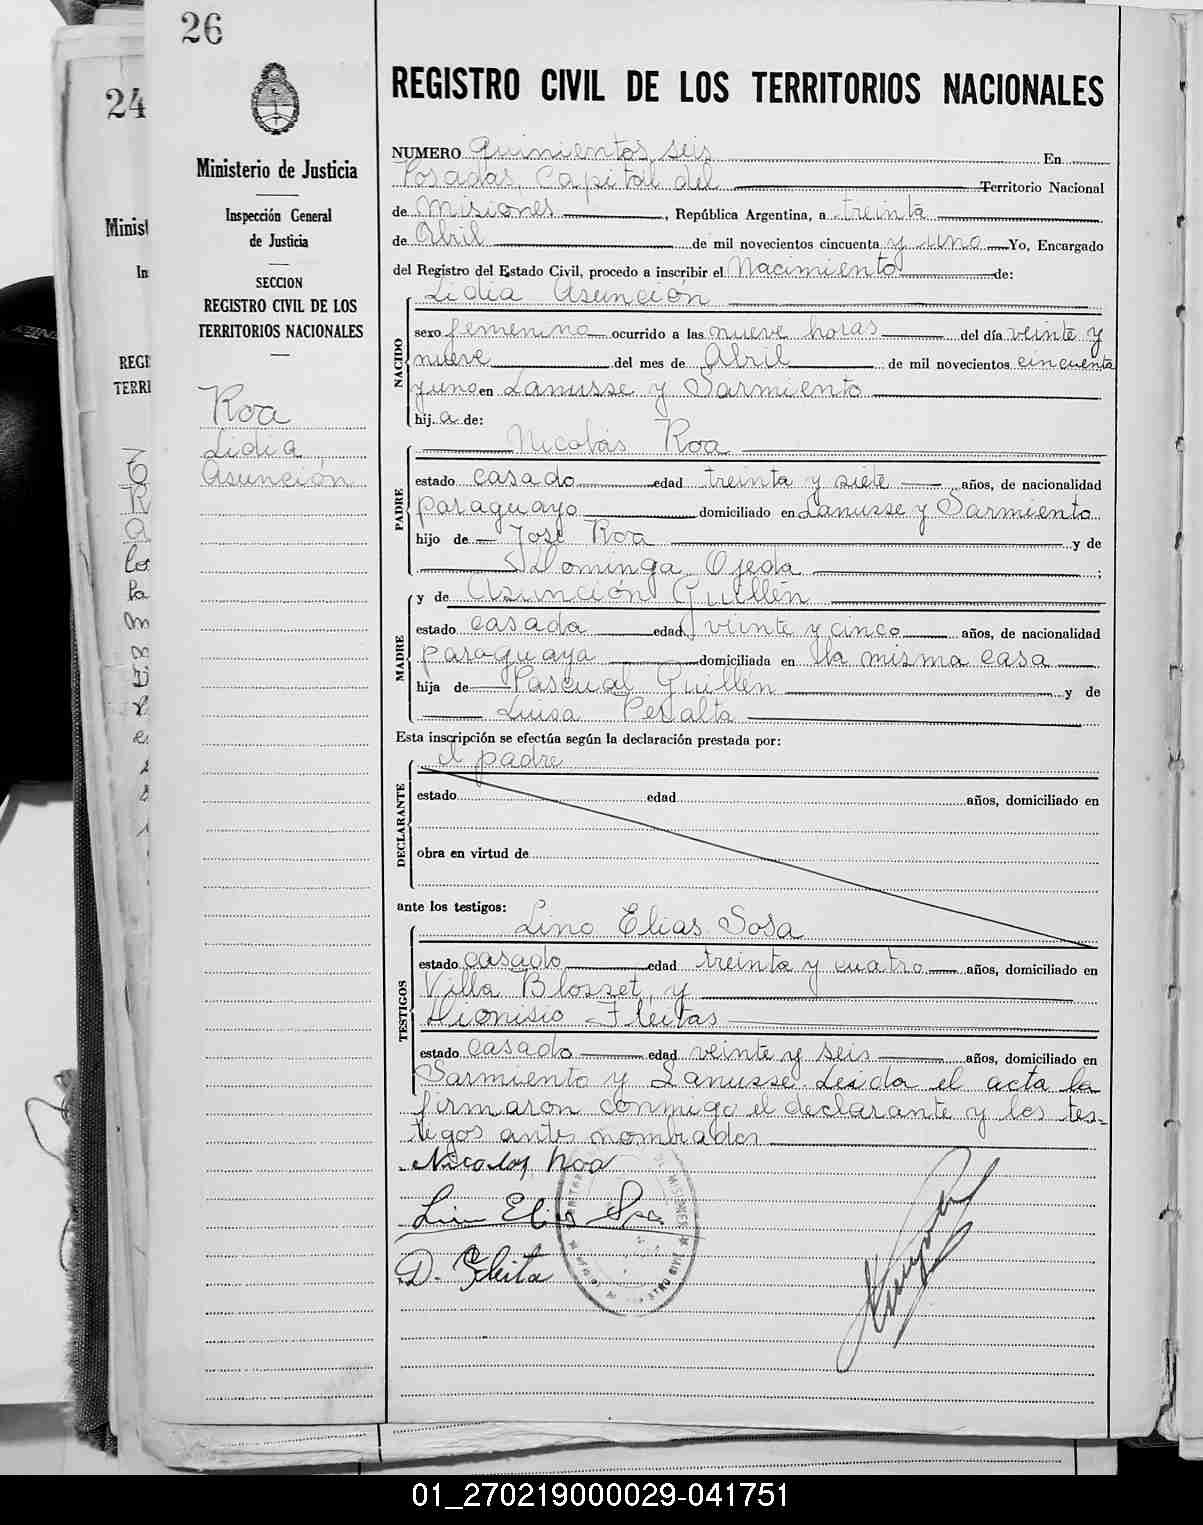 26
24
Ministerio de Justicia
Inspección General
de Justicia
SECCION
REGISTRO CIVIL DE LOS
TERRITORIOS NACIONALES
Roa
Lidia
Asunción
REGISTRO CIVIL DE LOS TERRITORIOS NACIONALES
NUMERO Quinientos seis En
Posadas, Capital del Territorio Nacional
de Misiones, República Argentina, a treinta
de Abril de mil novecientos cincuenta y uno Yo, Encargado
del Registro del Estado Civil, procedo a inscribir el Nacimiento de:
Lidia Asunción
NACIDO
sexo femenino ocurrido a las nueve horas del día veinte y
nueve del mes de Abril de mil novecientos cincuenta
y uno en Lanusse y Sarmiento
hij a de:
Nicolás Roa
PADRE
estado casado edad treinta y siete años, de nacionalidad
paraguayo domiciliado en Lanusse y Sarmiento
hijo de José Roa y de
Dominga Ojeda ;
y de Asunción Guillén
MADRE
estado casada edad veinte y cinco años, de nacionalidad
paraguaya domiciliada en la misma casa
hija de Pascual Guillén y de
Luisa Peralta
Esta inscripción se efectúa según la declaración prestada por:
el padre
DECLARANTE
estado edad años, domiciliado en
obra en virtud de
ante los testigos:
Lino Elias Sosa
TESTIGOS
estado casado edad treinta y cuatro años, domiciliado en
Villa Blosset, y
Dionisio Fleitas
estado casado edad veinte y seis años, domiciliado en
Sarmiento y Lanusse. Leida el acta la
firmaron conmigo el declarante y los tes-
tigos antes nombrados
Nicolas Roa
Lino Elias Sosa
D. Fleita
01_270219000029-041751